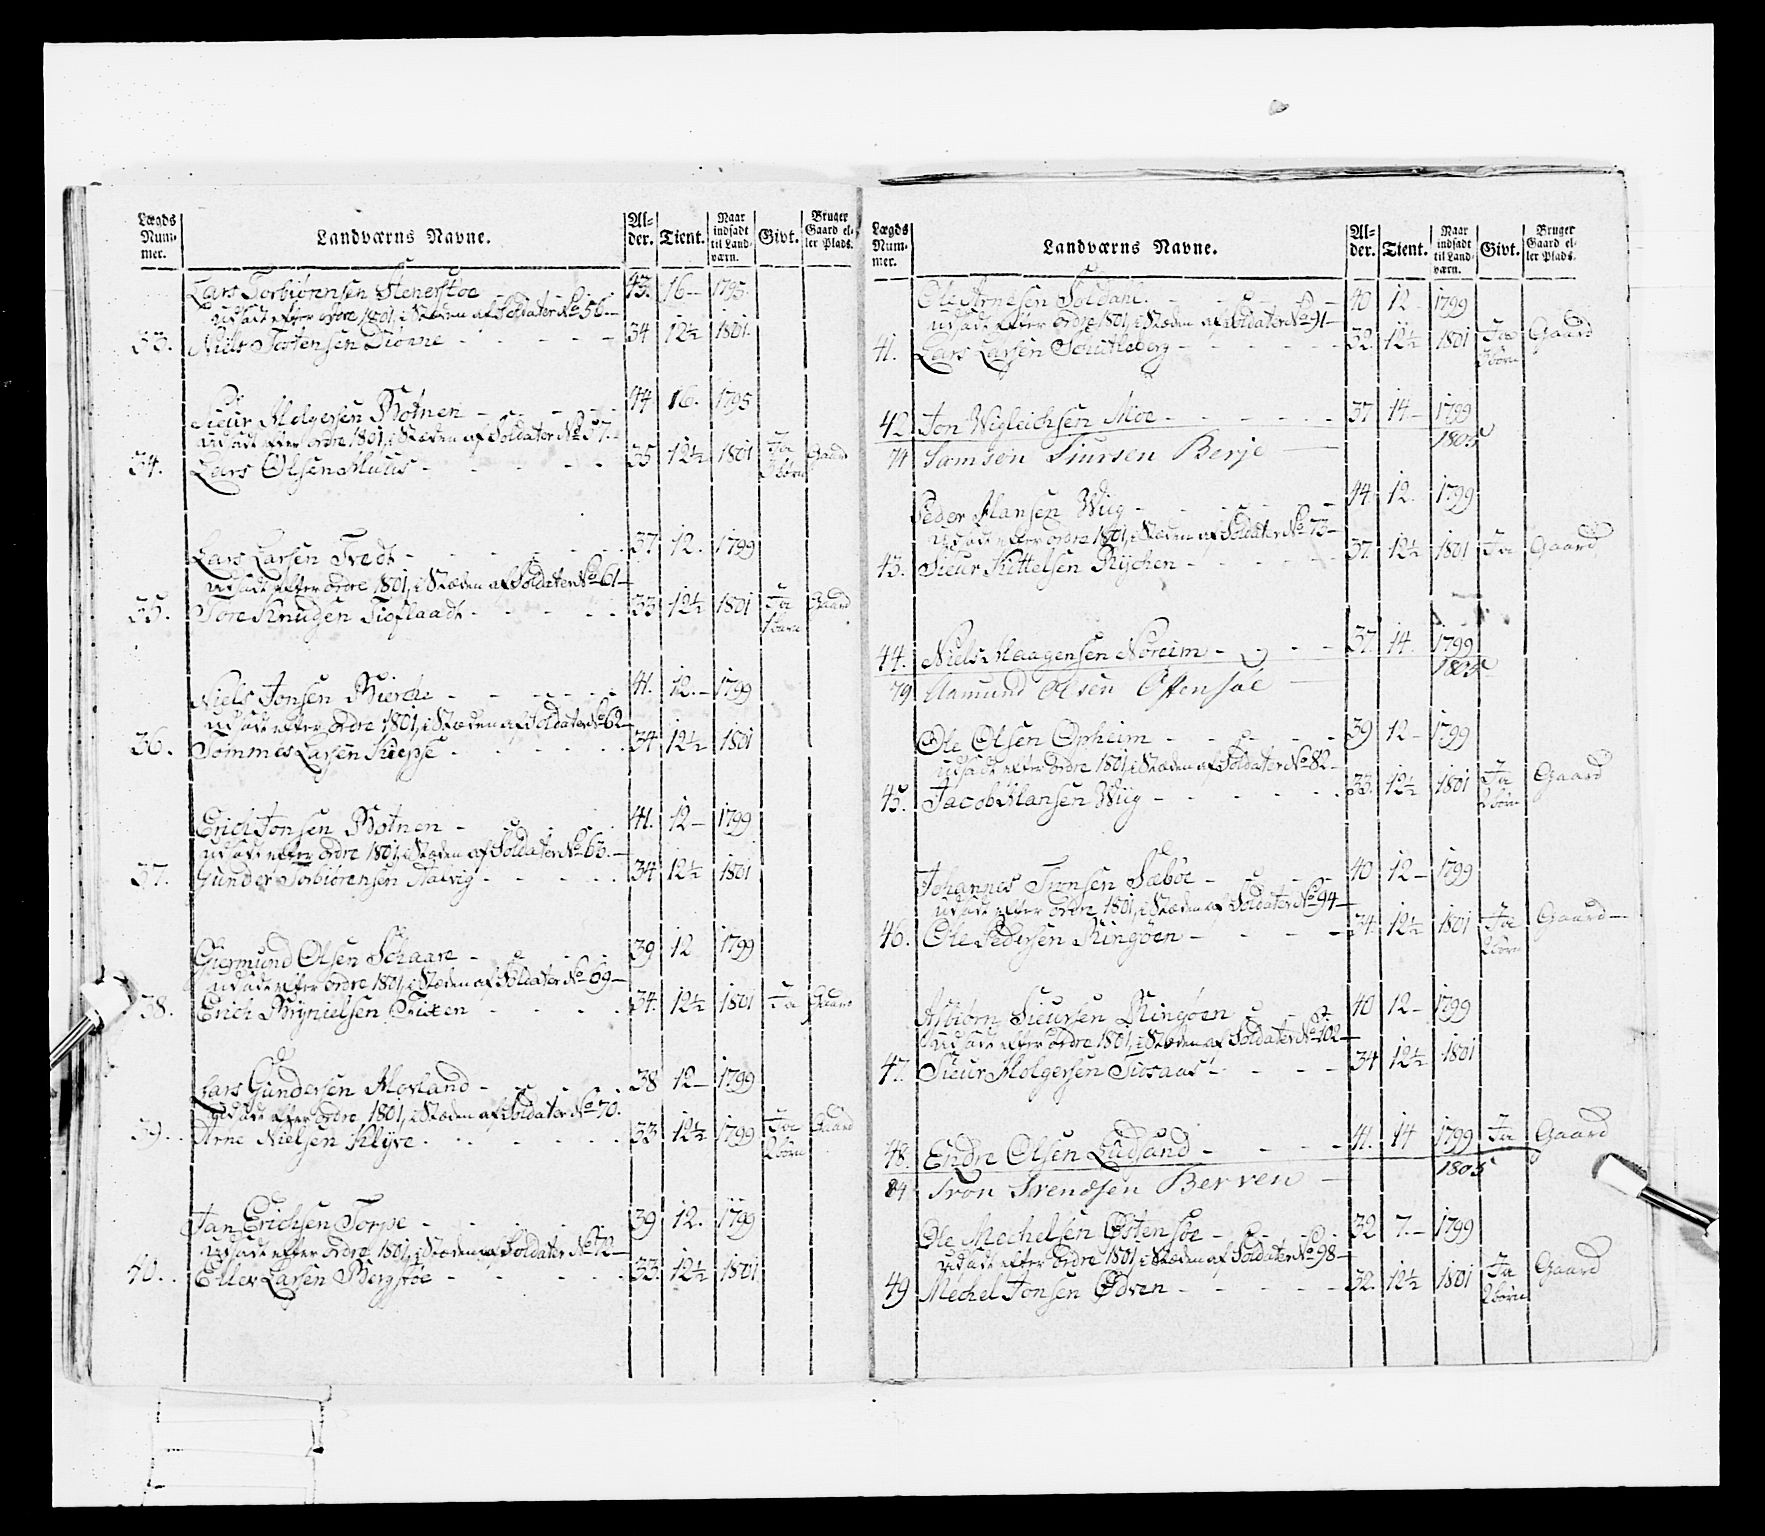 Lægds Num- mer. Landværns Navne. Al- der. Tient. Naar indsadt til Land- værn. Givt. Bruger Gaard el- ler Plads.
Lars Torbiörensen Stenerstöe 43. 16 – 1795.
Udsadt efter ordre 1801, i Stæden af Soldater No 56 –
33. Niels Tostensen Diönne 34 12½ 1801.
Sieur Helgersen Botnen 44 16. 1795
Udsadt efter ordre 1801, i Stæden af Soldater No 57.
34. Lars Olsen Huus 35 12½ 1801 Ja Gaard
börn
Lars Larsen Tvedt 37 12. 1799
Udsadt efter ordre 1801, i Stæden af Soldater No 61 –
35. Tore Knudsen Tioflaadt 33 12½ 1801 Ja Gaard
Niels Jonsen Bierche 41. 12. – 1799
Udsadt efter ordre 1801, i Stæden af Soldater No 62 –
36. Tommes Larsen Kiepse 34 12½ 1801
Erich Jonsen Botnen 41. 12 – 1799
Udsadt efter ordre 1801, i Stæden af Soldater No 63. –
37. Gunder Torbiörensen Aalvig 34 12½ 1801
Giermund Olsen Schaare 39 12 1799
Udsadt efter ordre 1801, i Stæden af Soldater No 69 –
38. Erich Brynielsen 34. 12½ 1801 Ja Gaard
Lars Gundersen Movland 38 12 – 1799
Udsadt efter ordre 1801, i Stæden af Soldater No 70.
39. Arne Nielsen Klyve 33 12½ 1799 Ja Gaard
2 börn
Jan Erichsen Torpe 39 12. 1799
Udsadt efter ordre 1801, i Stæden af Soldater No 72 –
40. Ellev Larsen Bergstöe 33. 12½ 1801
Lægds Num- mer. Landværns Navne. Al- der. Tient. Naar indsadt til Land- værn. Givt. Bruger Gaard el- ler Plads.
Ole Arnesen Soldahl 40 12 – 1799
Udsadt efter ordre 1801, i Stæden af Soldater No 91 –
41. Lars Larsen Schutleberg 32. 12½ 1801 Ja Gaard
börn
42 Jon Wigleichsen Moe 37 14 – 1799
1805
74 Samson Siursen Berje
Peder Hansen Wiig 44 12. 1799
Udsadt efter ordre 1801, i Stæden af Soldater No 73 –
43. Sieur Kittelsen Rychen 37. 12½ 1801 Ja Gaard
44. Niels Haagensen Noreim 37. 14. 1799
1805
79 Aamund Olsen
Ole Olsen Orheim 39 12 – 1799
Udsadt efter ordre 1801, i Stæden af Soldater No 82 –
45. Jacob Hansen Wiig 33. 12½ 1801 Ja Gaard
2 börn
Johannes Tronsen Sæböe 40 12 – 1799
Udsadt efter ordre 1801, i Stæden af Soldater No 94 –
46. Ole Pedersen Ringöen 34. 12½ 1801 Ja Gaard –
2 börn
Asbiörn Sieursen Ringöen 40 12 – 1799
Udsadt efter ordre 1801, i Stæden af Soldater No 102 –
47. Sieur Holgersen 34 12½ 1801
48. Endre Olsen Ludsand 41. 14 1799 Ja Gaard
1805
84 Tron Svendsen Berven
Ole Mechelsen Östensöe 32 7. – 1799
Udsadt efter ordre 1801, i Stæden af Soldater No 98 –
49 Mechel Jonsen Ödven 32. 12½ 1801 Ja Gaard
2 börn